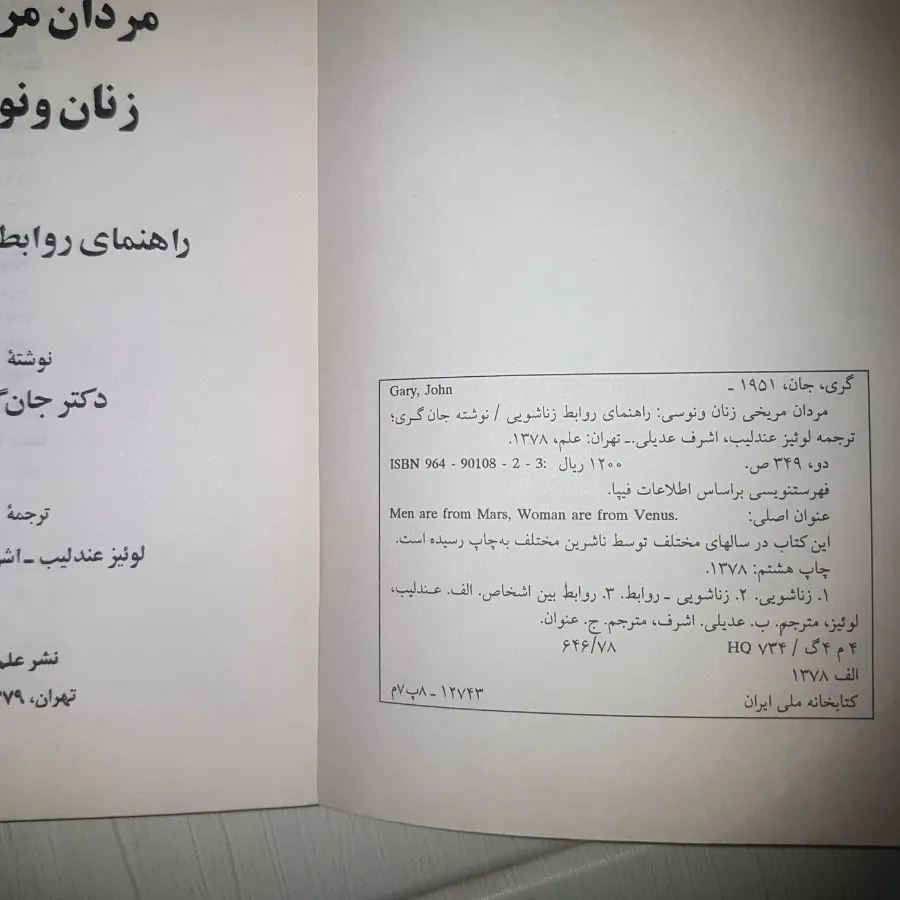 مردان مر
زنان ونو
راهنمای روابط
نوشتهٔ
دکتر جان
ترجمهٔ
لوئیز عندلیب ـ اشر
نشر علم
تهران،
گری، جان، ۱۹۵۱ ـ Gary, John
مردان مریخی زنان ونوسی: راهنمای روابط زناشویی / نوشته جان گری؛
ترجمه لوئیز عندلیب، اشرف عدیلی.ـ تهران: علم، ۱۳۷۸.
دو، ۳۴۹ ص. ۱۲۰۰ ریال ISBN 964 - 90108 - 2 - 3:
فهرستنویسی براساس اطلاعات فیپا.
عنوان اصلی: Men are from Mars, Woman are from Venus.
این کتاب در سالهای مختلف توسط ناشرین مختلف به‌چاپ رسیده است.
چاپ هشتم: ۱۳۷۸.
۱. زناشویی. ۲. زناشویی ـ روابط. ۳. روابط بین اشخاص. الف. عندلیب،
لوئیز، مترجم. ب. عدیلی. اشرف، مترجم. ج. عنوان.
۴ م ۴گ / HQ ۷۳۴ ۶۴۶/۷۸
الف ۱۳۷۸
کتابخانه ملی ایران ۱۲۷۴۳ ـ ۷۸پ۷م